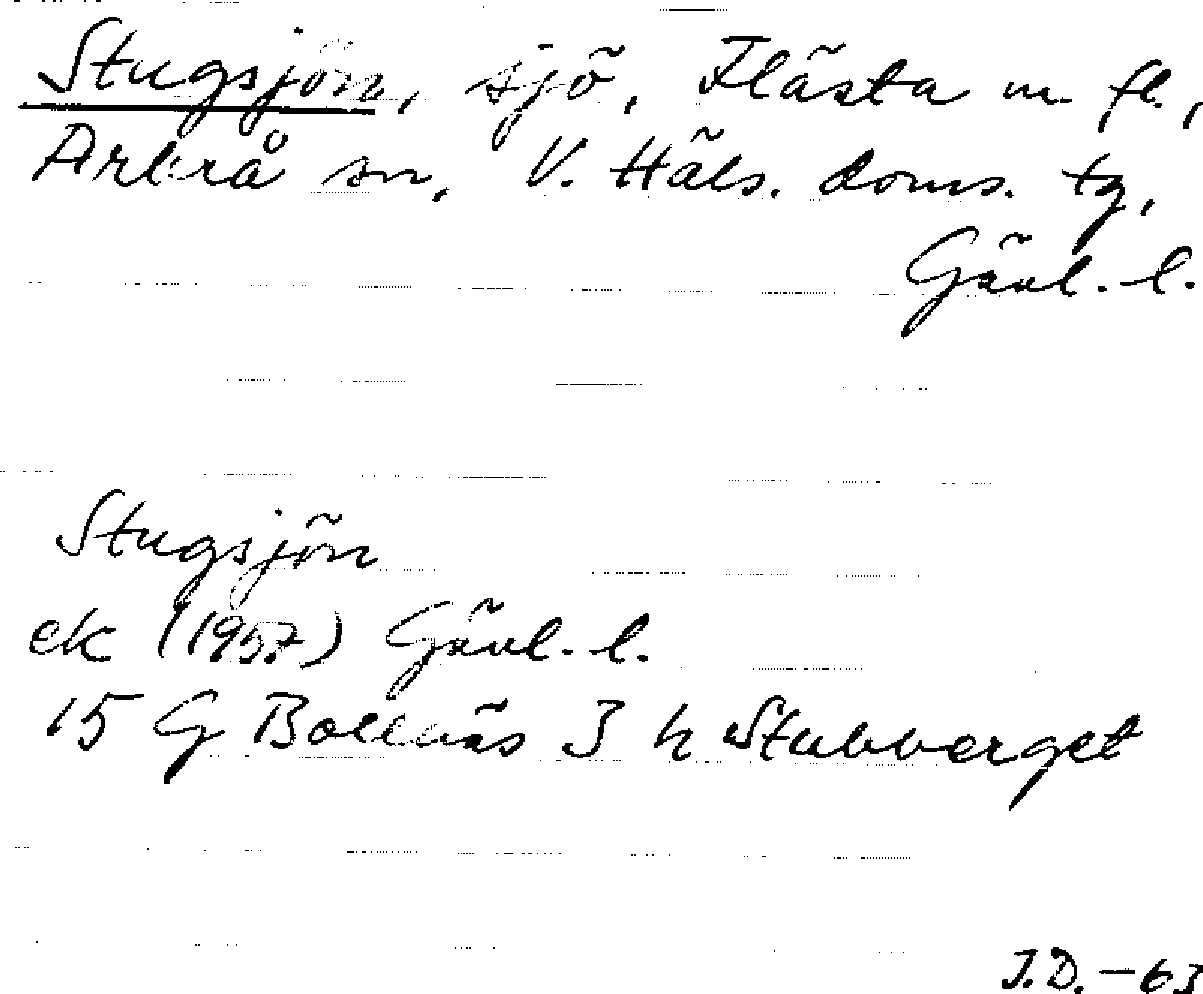 Stugsjön, sjö, Flästa m. fl.,
Arbrå sn, V. Häls. doms. tg,
Gävl. l.
Stugsjön
ek (1957) Gävl. l.
15 G Bollnäs 3 h Stubberget
J.D. - 63